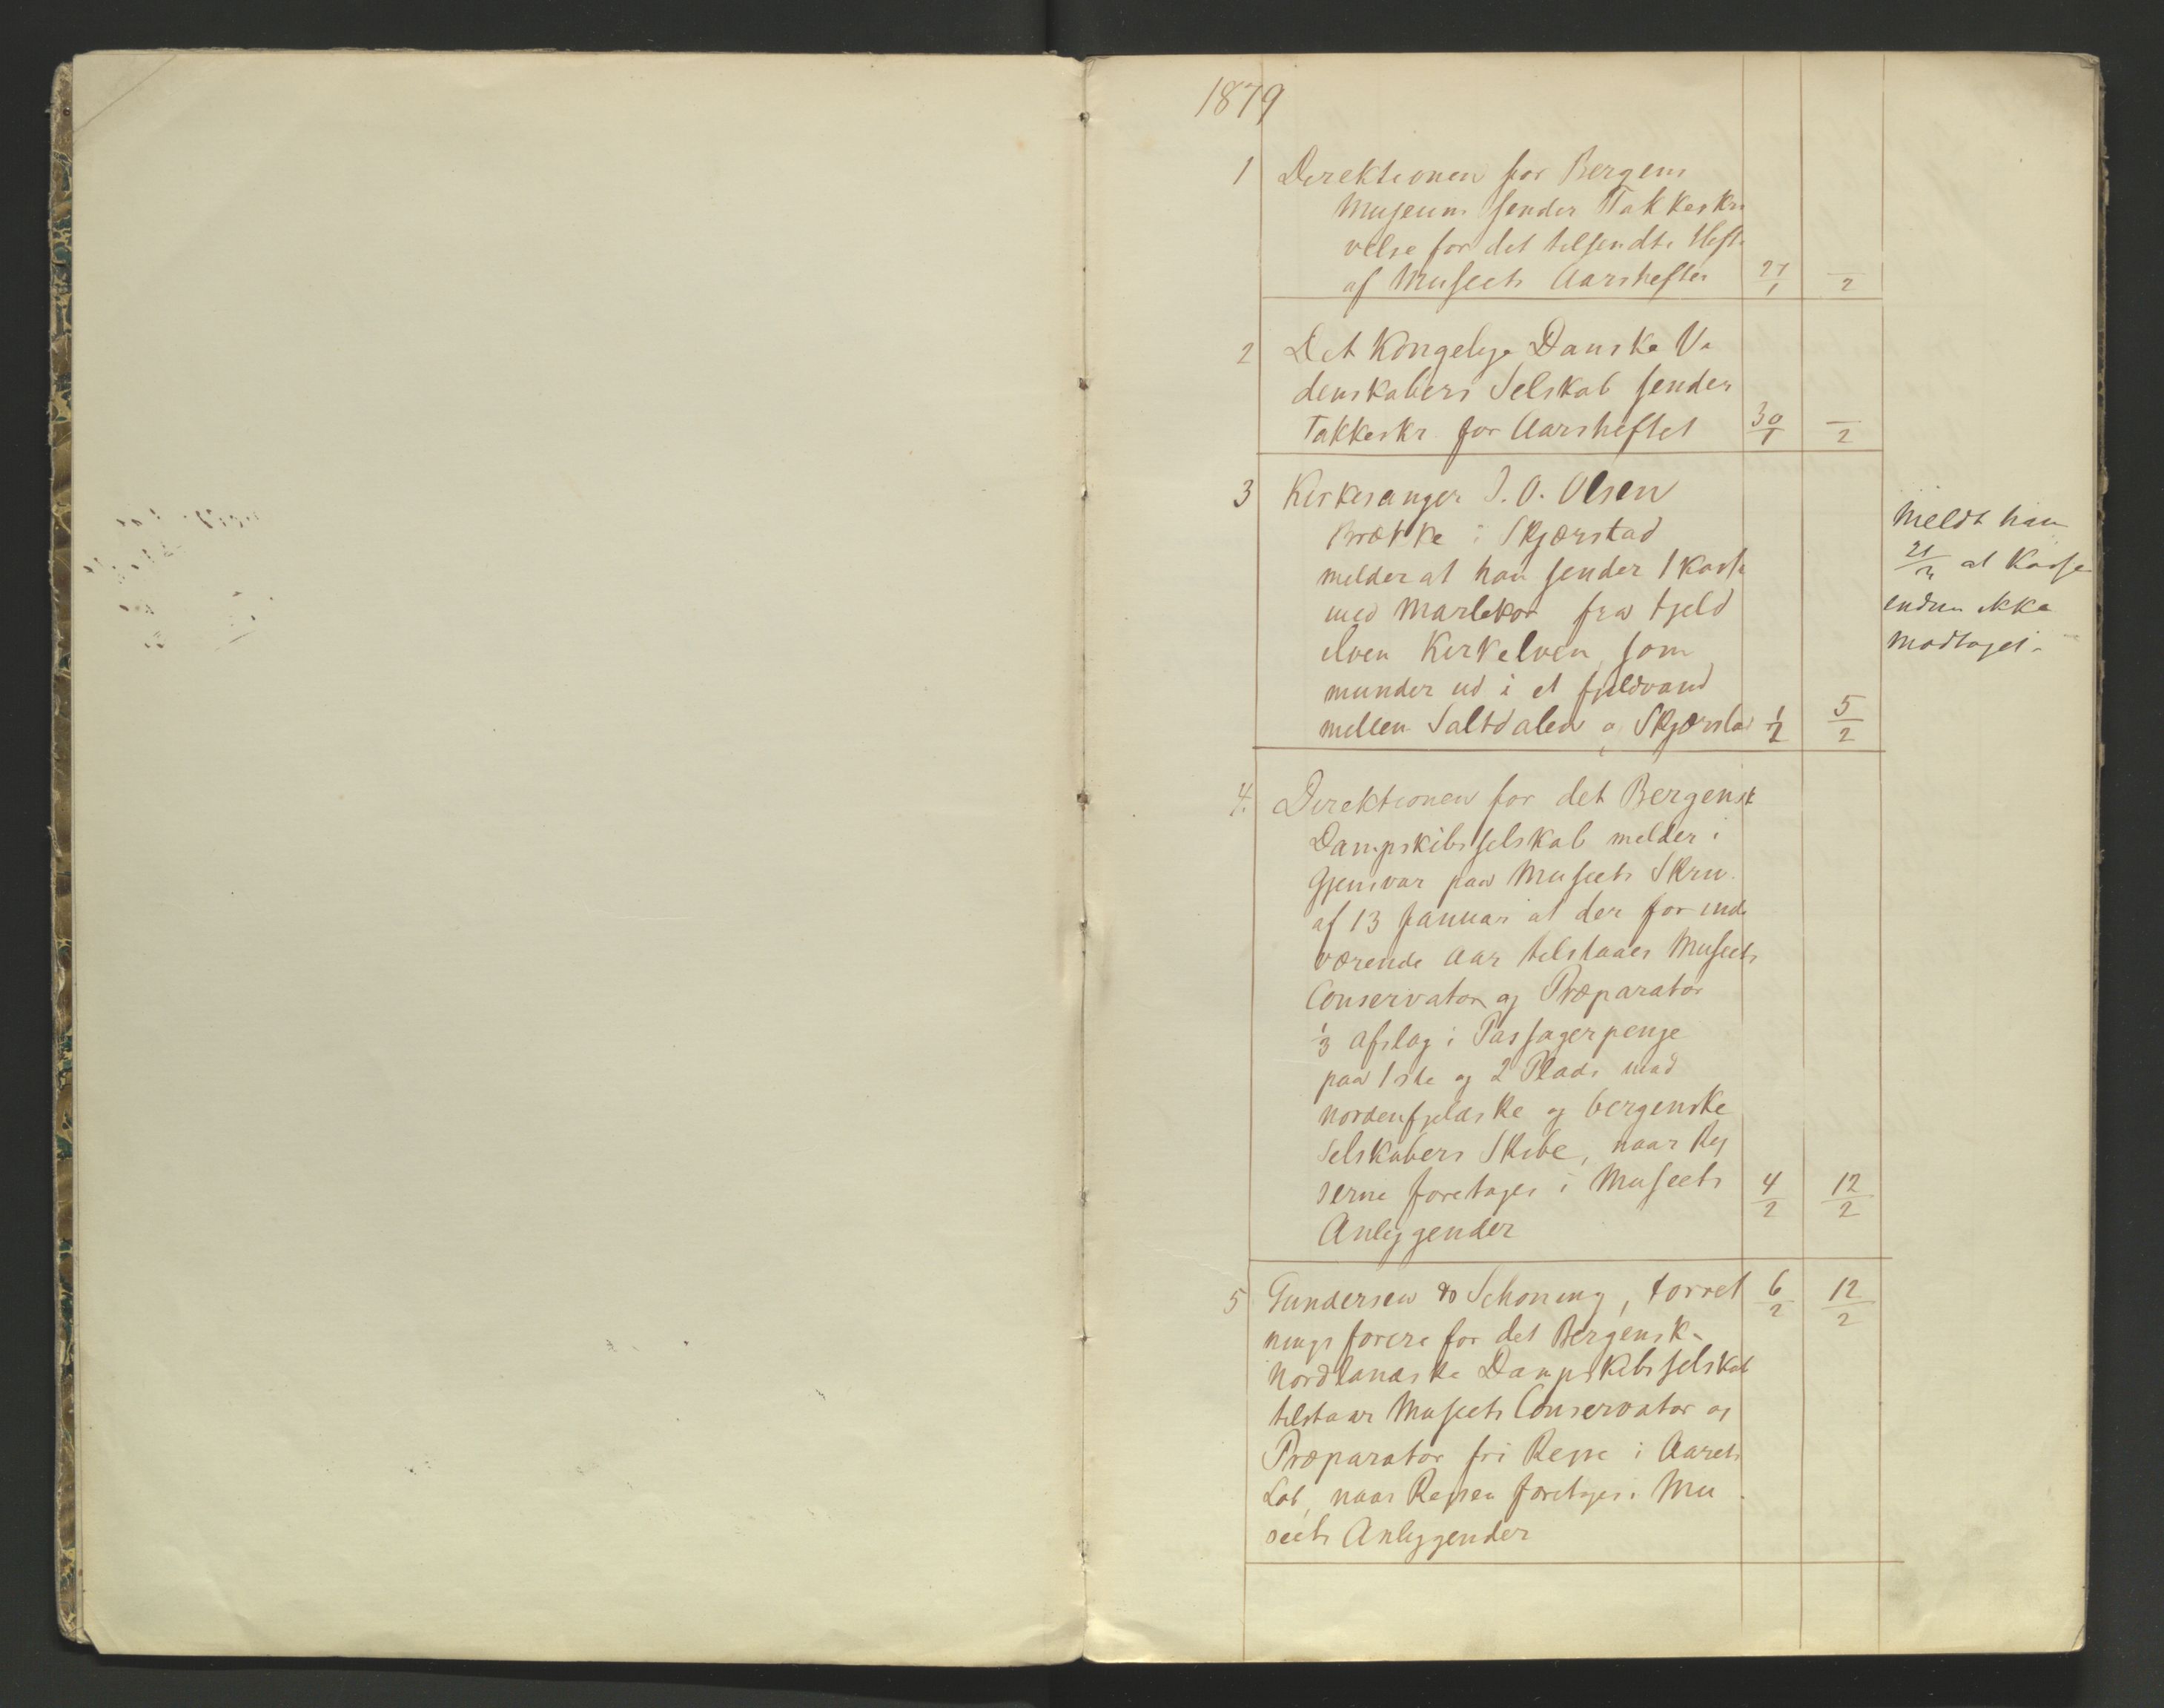 1879
1 Direktionen for Bergens
Museum sender Takkeskri
velse for det tilsendte Hefte
af Museets Aarshefter 27/1 —/2
2 Det Kongelige Danske Vi
denskabers Selskab sender
Takkeskr. for Aarsheftet 30/1 —/2
3 Kirkesanger J. O. Olsen
Brække i Skjærstad
melder at han sender 1 Kasse
med Marlekor fra Fjeld
elven Kirkelven, som
munder ud i et fjeldvand
mellem Saltdalen og Skjærstad 1/2 5/2
Meldt ham
21/3 at Kasse
endnu ikke
modtaget.
4. Direktionen for det Bergensk
Dampskibsselskab melder i
Gjensvar paa Museets Skriv.
af 13 Januar at der for inde
værende Aar tilstaaes Museets
Conservator og Præparator
1/3 Afslag i Passagerpenge
paa 1ste og 2 Plads med
nordenfjeldske og bergenske
Selskabers Skibe, naar Rej
serne foretages i Museets 4/2 12/2
Anliggender
5 Gundersen & Schøning, Forret 6/2 12/2
ningsførere for det Bergensk-
Nordlandske Dampskibsselskab
tilstaar Museets Conservator og
Præparator fri Rejse i Aarets
Løb, naar Rejsen foretages i Mu
seets Anliggender